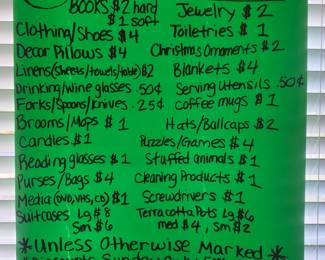 BOOKS $2 hard
$1 soft
Jewelry $2
Clothing/Shoes $4
Toiletries $1
Decor Pillows $4
Christmas Ornaments $2
Linens (Sheets/towels/table) $2
Blankets $4
Drinking/wine glasses .50¢
Serving Utensils .50¢
Forks/Spoons/Knives .25¢
coffee mugs $1
Brooms/Mops $1
Hats/Ballcaps $2
Candles $1
Puzzles/Games $4
Reading glasses $1
Stuffed animals $1
Purses/Bags $4
Cleaning Products $1
Media (DVD,VHS,CD) $1
Screwdrivers $1
Suitcases Lg $8
Sm $6
Terracotta Pots Lg $6
med $4, Sm $2
*Unless Otherwise Marked*